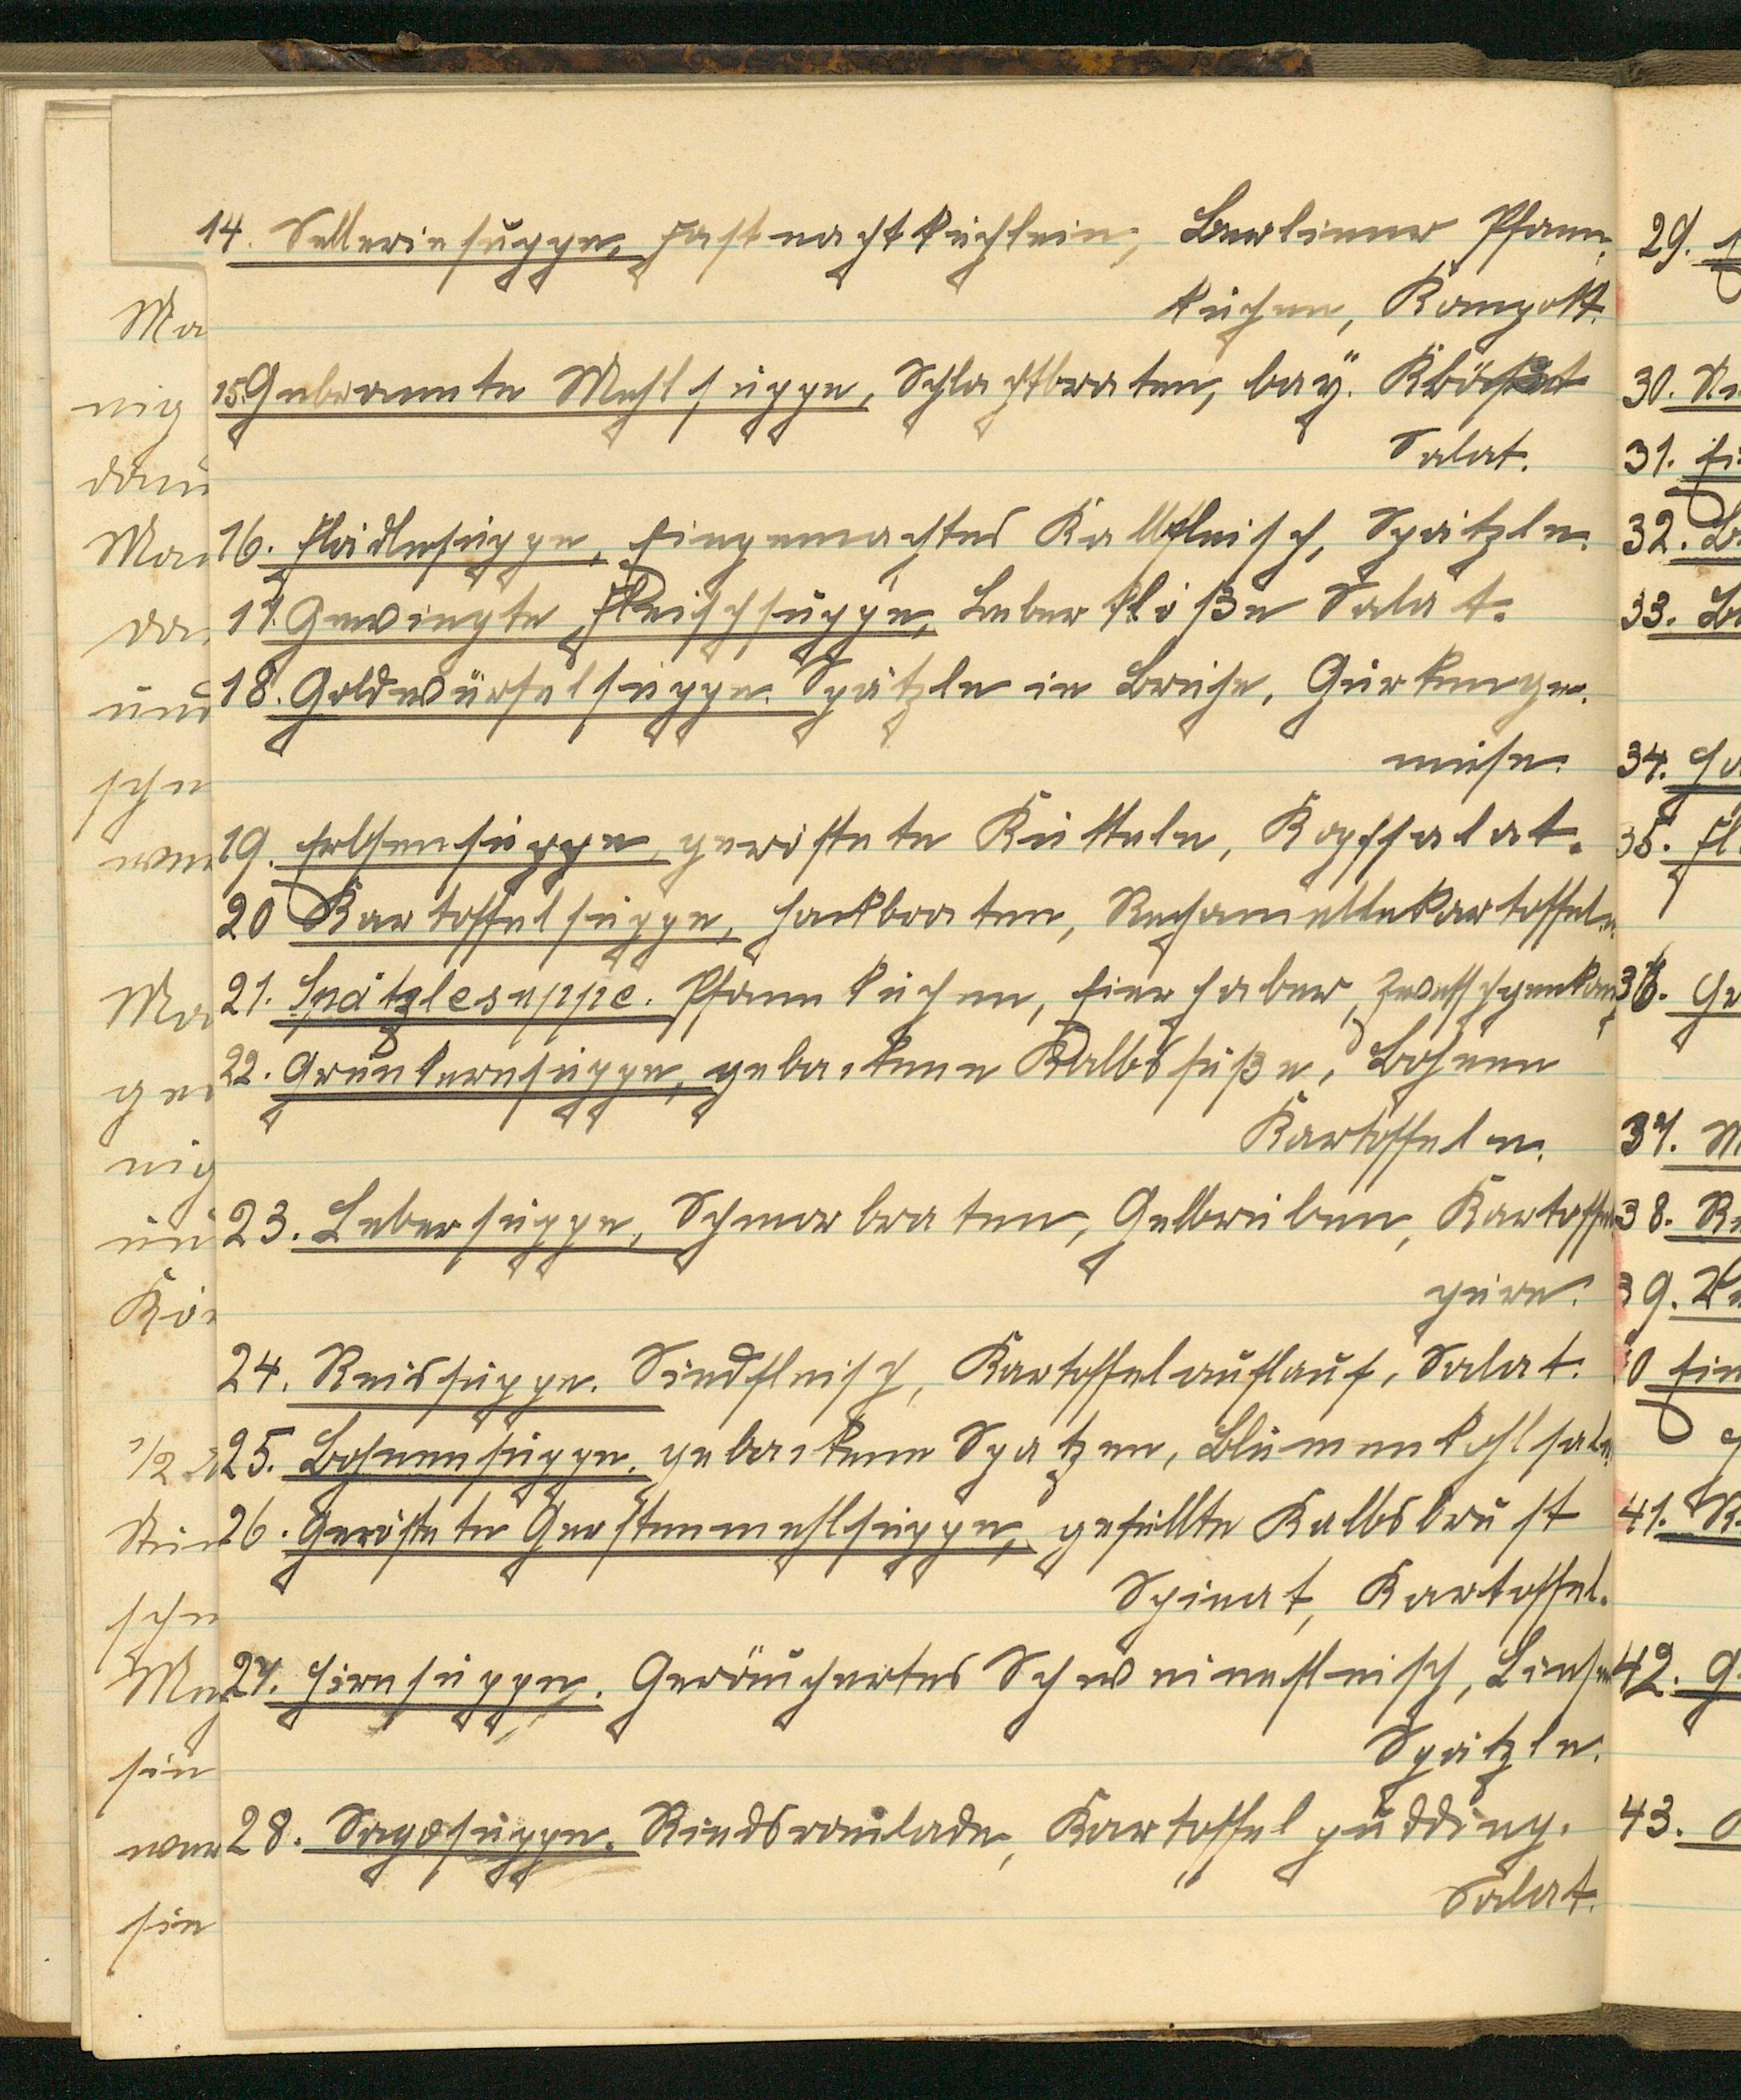 14. Selleriesuppe, Fastnachtküchlein, Berliner Pfann-
kuchen, Kompott.
15. Gebrannte Mehlsuppe, Schlachtbraten, bay.
Salat.
16. Flädlesuppe, Eingemachtes Kalbfleisch, Spätzle.
17. Gewiegte Fleischsuppe, Leberklöße Salat.
18. Goldwürfelsuppe. Spätzle in Brühe, Gurkenge-
müse.
19. Erbsensuppe, geröstete Kutteln, Kopfsalat.
20 Kartoffelsuppe, Hackbraten, Kartoffeln.
21. Spätzlesuppe. Pfannkuchen, Eierhaber, Zwetschgenkom
22. Grünkernsuppe, gebackene Kalbsfüße, Bohnen
Kartoffeln.
23. Lebersuppe, Schmorbraten, Gelbrüben, Kartoffel
püre.
24. Reissuppe. Siedfleisch, Kartoffelauflauf, Salat.
25. Bohnensuppe. gebackene Spatzen, Blumenkohlsala
26. Geröstete Gerstenmehlsuppe, gefüllte Kalbsbrust
Spinat, Kartoffel.
27. Hirnsuppe. Geräuchertes Schweinefleisch, Linsen
Spätzle.
28. Sagosuppe. Rindsroulade, Kartoffelpudding.
Salat.
29.
30.
31.
32.
33.
34.
35.
36.
37.
38.
39.
41.
42.
43.